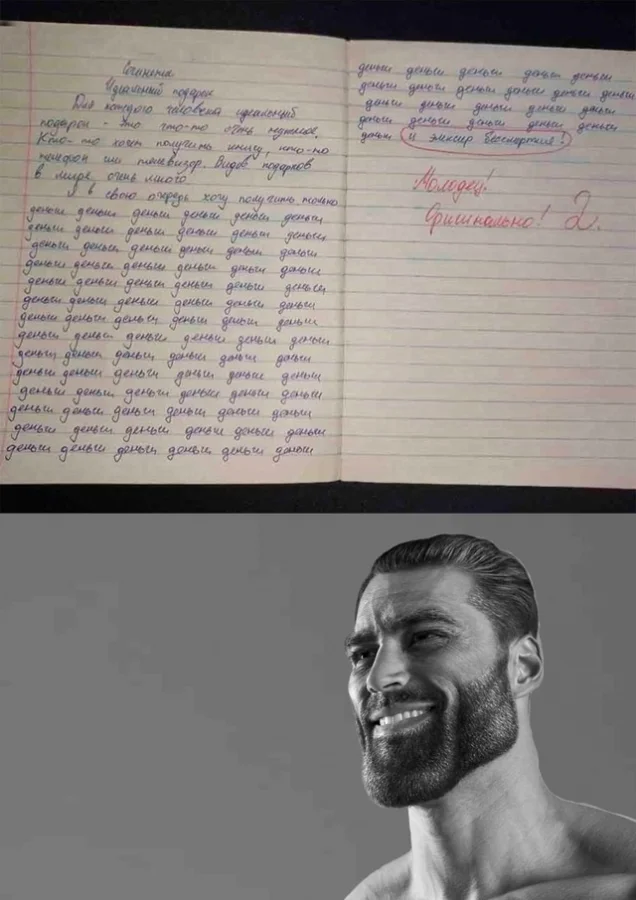 Сочинение
Идеальный подарок
Для каждого человека идеальный
подарок - это что-то очень нужное.
Кто-то хочет получить книгу, кто-то
телефон или телевизор. Видов подарков
в мире очень много.
Я в свою очередь хочу получить только
деньги деньги деньги деньги деньги деньги
деньги деньги деньги деньги деньги деньги
деньги деньги деньги деньги деньги деньги
деньги деньги деньги деньги деньги деньги
деньги деньги деньги деньги деньги деньги
деньги деньги деньги деньги деньги деньги
деньги деньги деньги деньги деньги деньги
деньги деньги деньги деньги деньги деньги
деньги деньги деньги деньги деньги деньги
деньги деньги деньги деньги деньги деньги
деньги деньги деньги деньги деньги деньги
деньги деньги деньги деньги деньги деньги
деньги деньги деньги деньги деньги деньги
деньги деньги деньги деньги деньги деньги
деньги деньги деньги деньги деньги
деньги деньги деньги деньги деньги деньги
деньги деньги деньги деньги деньги
деньги деньги деньги деньги деньги
деньги и эликсир бессмертия!
Молодец!
Оригинально! 2.